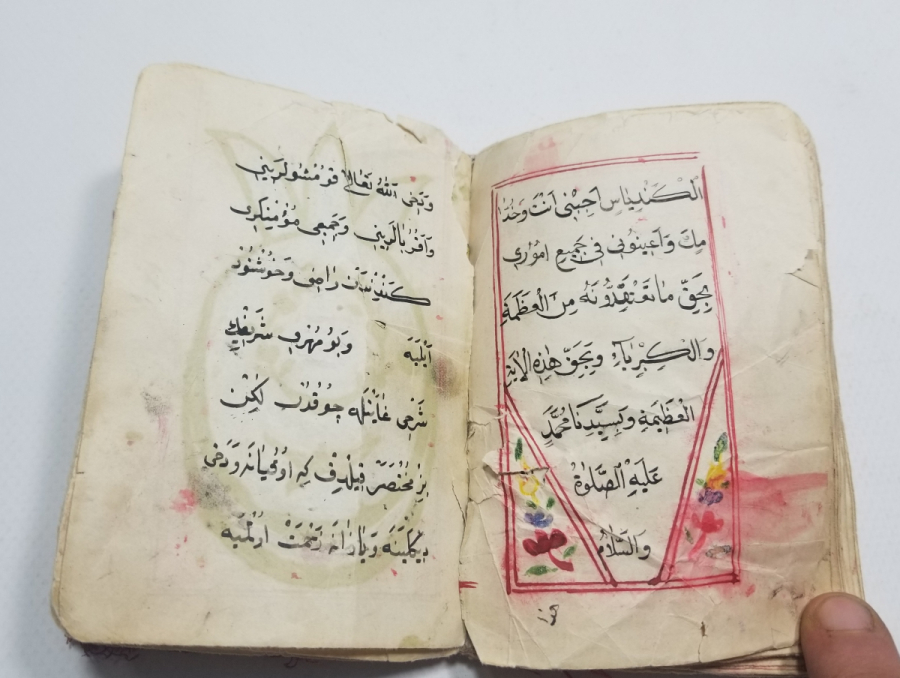 الْكَنْدِيَاسِ اَجِبْنِى اَنْتَ وَخُدَّا
مِكَ وَاَعِينُونِى فِى جَمِيعِ اُمُورِى
بِحَقِّ مَا تَعْتَقِدُونَهُ مِنَ الْعَظَمَةِ
وَالْكِبْرِيَاۤءِ وَبِحَقِّ هٰذِهِ الْاٰيَةِ
الْعَظِيمَةِ وَبِسَيِّدِنَا مُحَمَّدٍ
عَلَيْهِ الصَّلٰوةُ
وَالسَّلَامُ
وَدَخِى اللّٰهُ تَعَالٰى قُومْشُولَرِينِى
وَاَقْرِبَالَرِينِى وَجَمِيعِ مُؤْمِنْلَرِى
كَنْدِيسِنْدَنْ رَاضِى وَخُوشْنُودْ
اَيْلِيَه وَبُو مُهْرِكْ شَرِيفِكْ
شَرْحِى غَايْتَلَه چُوقْدُرْ لٰكِنْ
بِزْ مُخْتَصَرْ قِيلْدِقْ كِه اُوقُيَانَه وَدَخِى
دِيكْلِينَه وَيَازَانَه زَحْمَتْ اُولْمَيَه